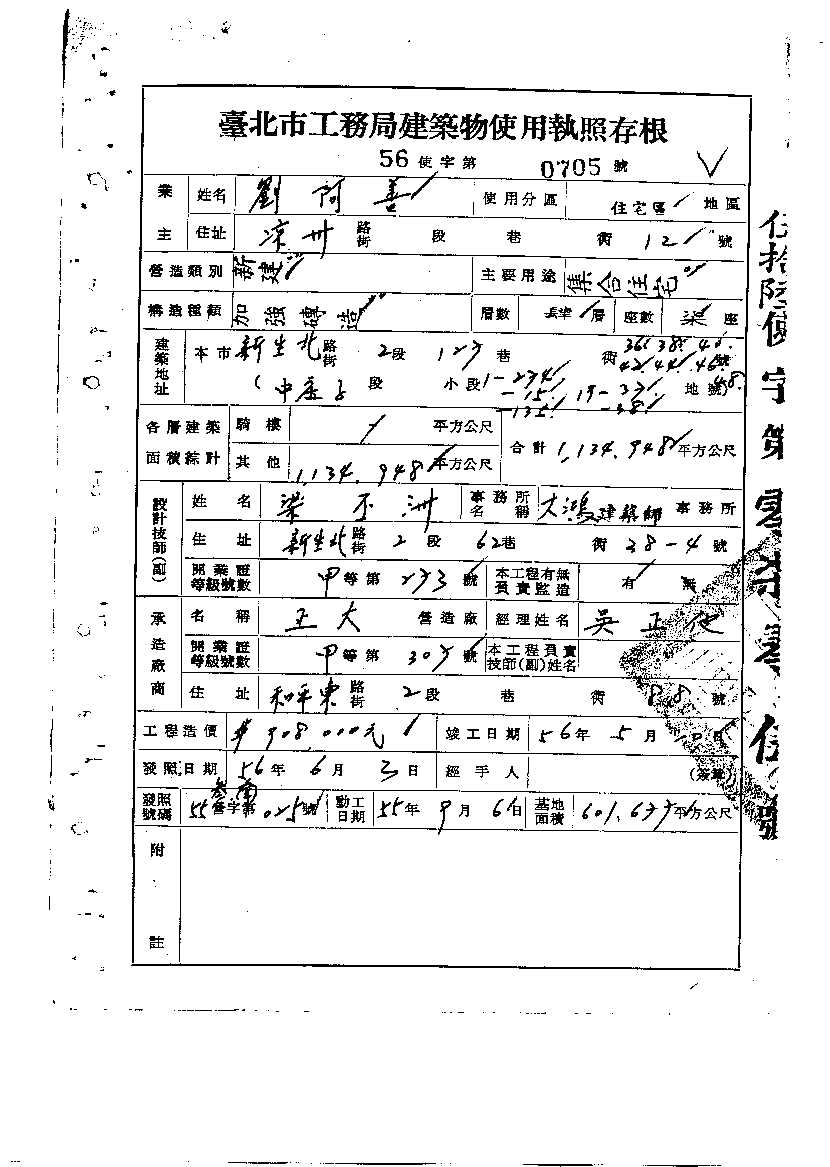 臺北市工務局建築物使用執照存根
56使字第 0705 號
業主 姓名 劉阿善 使用分區 住宅區 地區
住址 涼州 路街 段 巷 衖 121 號
營造類別 新建 主要用途 集合住宅
構造種類 加強磚造 層數 層 座數 座
建築地址 本市 新生北 路街 2段 127巷 衖 36.38.40. 42.44.46. 48. 號
( 中庄子 段 小段 地號)
各層建築面積綜計 騎樓 平方公尺 合計 1,134.948 平方公尺
其他 1,134.948 平方公尺
設計技師(副) 姓名 梁丕洲 事務所名稱 大鴻建築師 事務所
住址 新生北 路街 2段 62巷 衖 38-4 號
開業證等級號數 甲等第 273 號 本工程有無負責監造 有 無
承造廠商 名稱 正大 營造廠 經理姓名 吳正
開業證等級號數 甲等第 307 號 本工程負責技師(副)姓名
住址 和平東 路街 2段 巷 衖 88 號
工程造價 908,000元 竣工日期 56年5月 日
發照日期 56年6月3日 經手人 (簽章)
發照號碼 55 營字第 025 號 動工日期 55年9月6日 基地面積 601.677 平方公尺
附註
伍拾陸使字第零柒零伍號